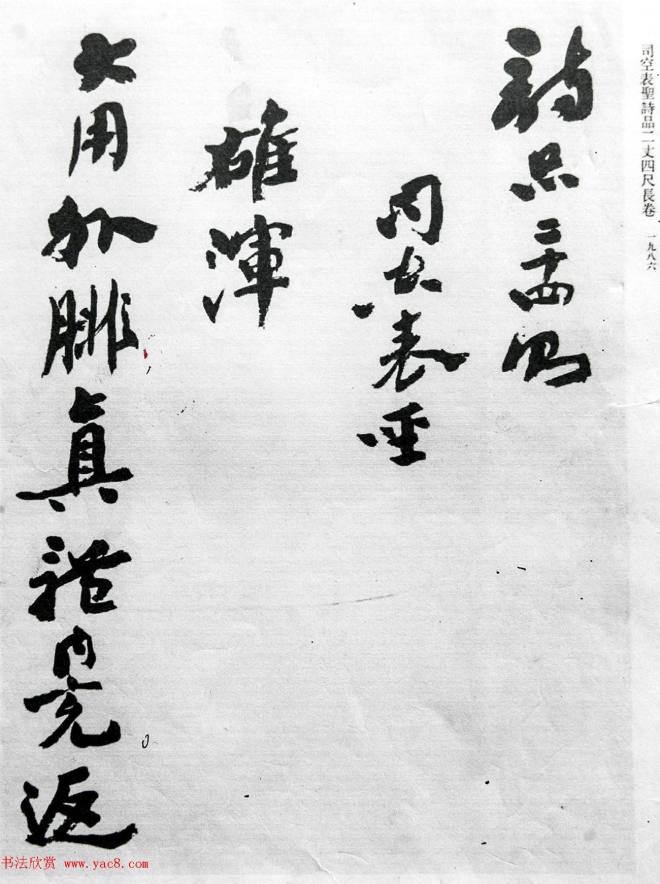 司空表聖詩品二丈四尺長卷 一九八六
詩品二十四則
司空表聖
雄渾
大用外腓真體内充返
书法欣赏 www.yac8.com